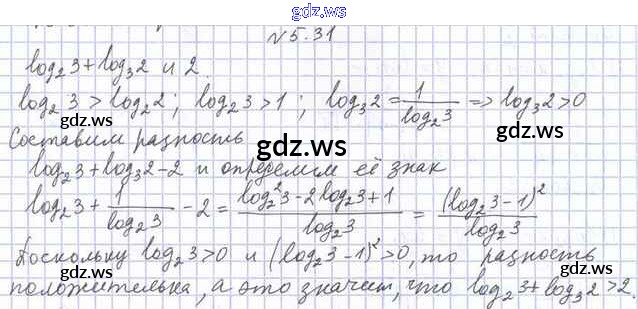 gdz.ws
N 5.31
log₂3 + log₃2 и 2.
log₂3 > log₂2; log₂3 > 1; log₃2 = 1/log₂3 => log₃2 > 0
Составим разность
gdz.ws
log₂3 + log₃2 - 2 и определим её знак
log₂3 + 1/log₂3 - 2 = (log₂²3 - 2log₂3 + 1)/log₂3 = (log₂3 - 1)²/log₂3
gdz.ws gdz.ws
Поскольку log₂3 > 0 и (log₂3 - 1)² > 0, то разность
положительна, а это значит, что log₂3 + log₃2 > 2.
gdz.ws gdz.ws